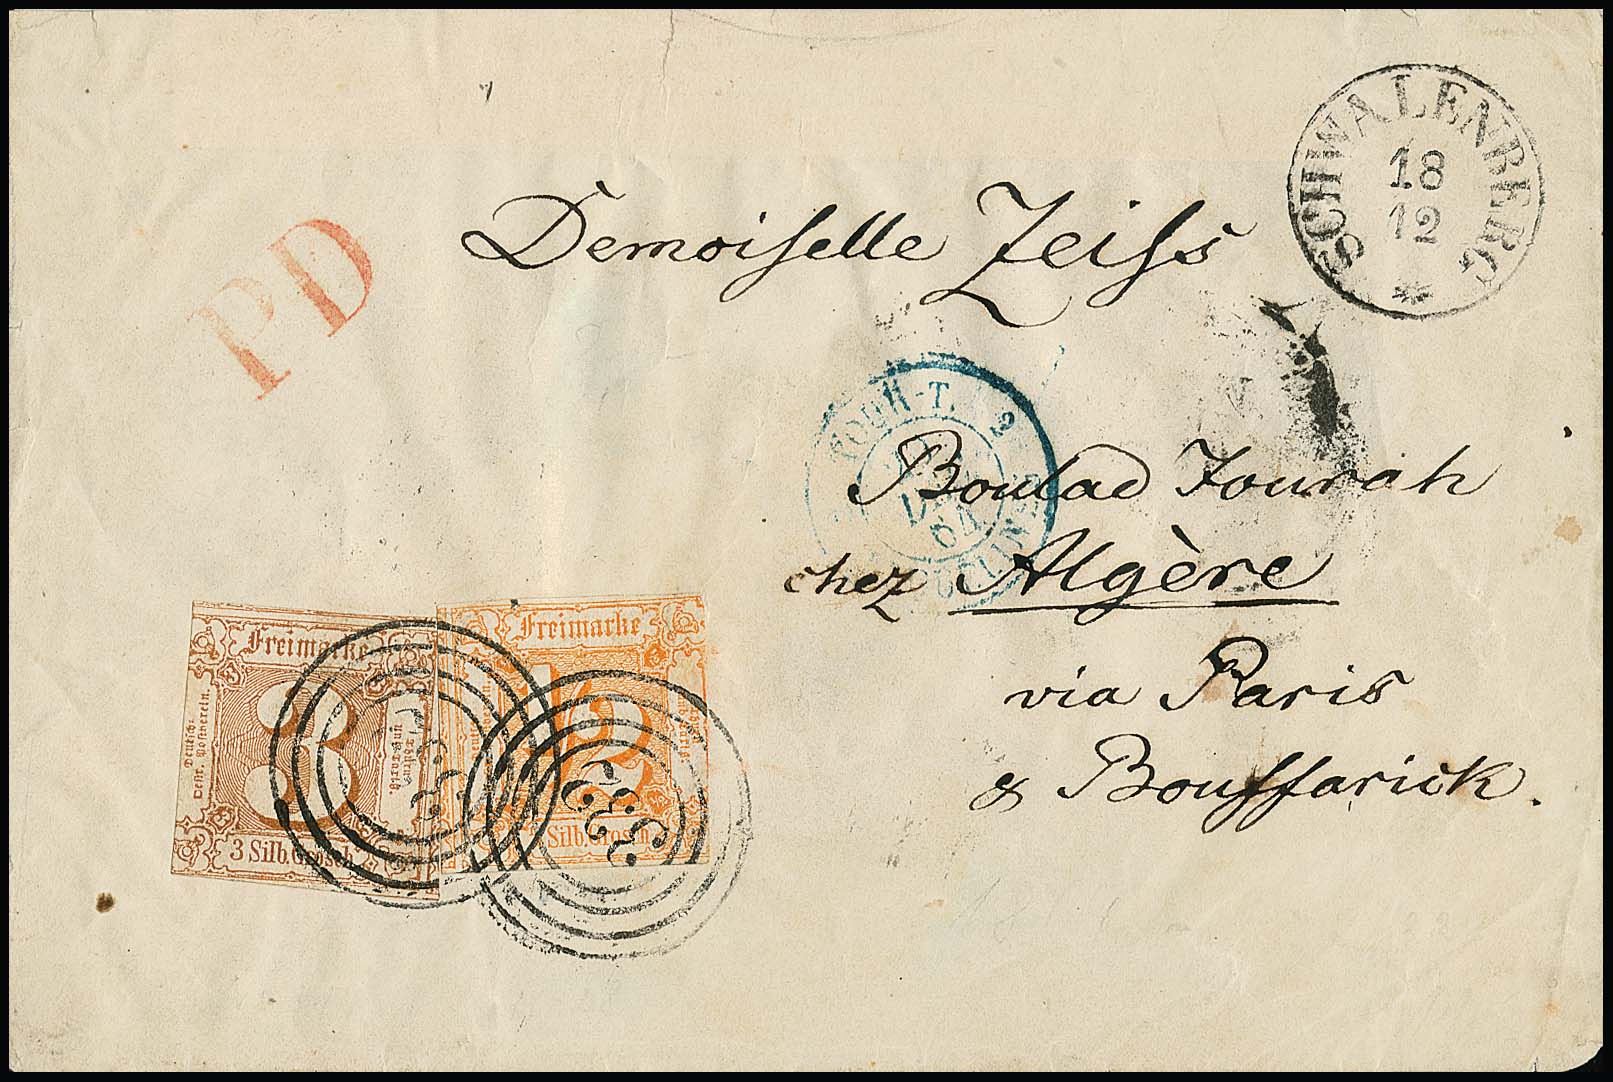 SCHWALENBERG
18
12
PD
Demoiselle Zeiss
TOUR-T.
2
64
Boulad Jourah
chez Algère
via Paris
& Bouffarick.
Freimarke
Deutsch-
Oestr. Postverein.
3 Silb. Grosch.
Freimarke
1/2
Silb. Grosch.